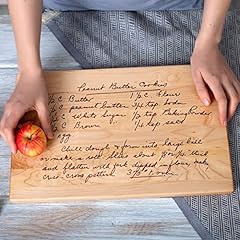 Peanut Butter Cookies
½ C Butter 1¼ C Flour
½ C peanut butter ¾ tsp. Soda
½ C White Sugar ½ tsp Baking Powder
½ C Brown ¼ tsp salt
1 egg
Chill dough & form into large ball
or make a
and flatten with fork dipped in
criss cross pattern. 375°